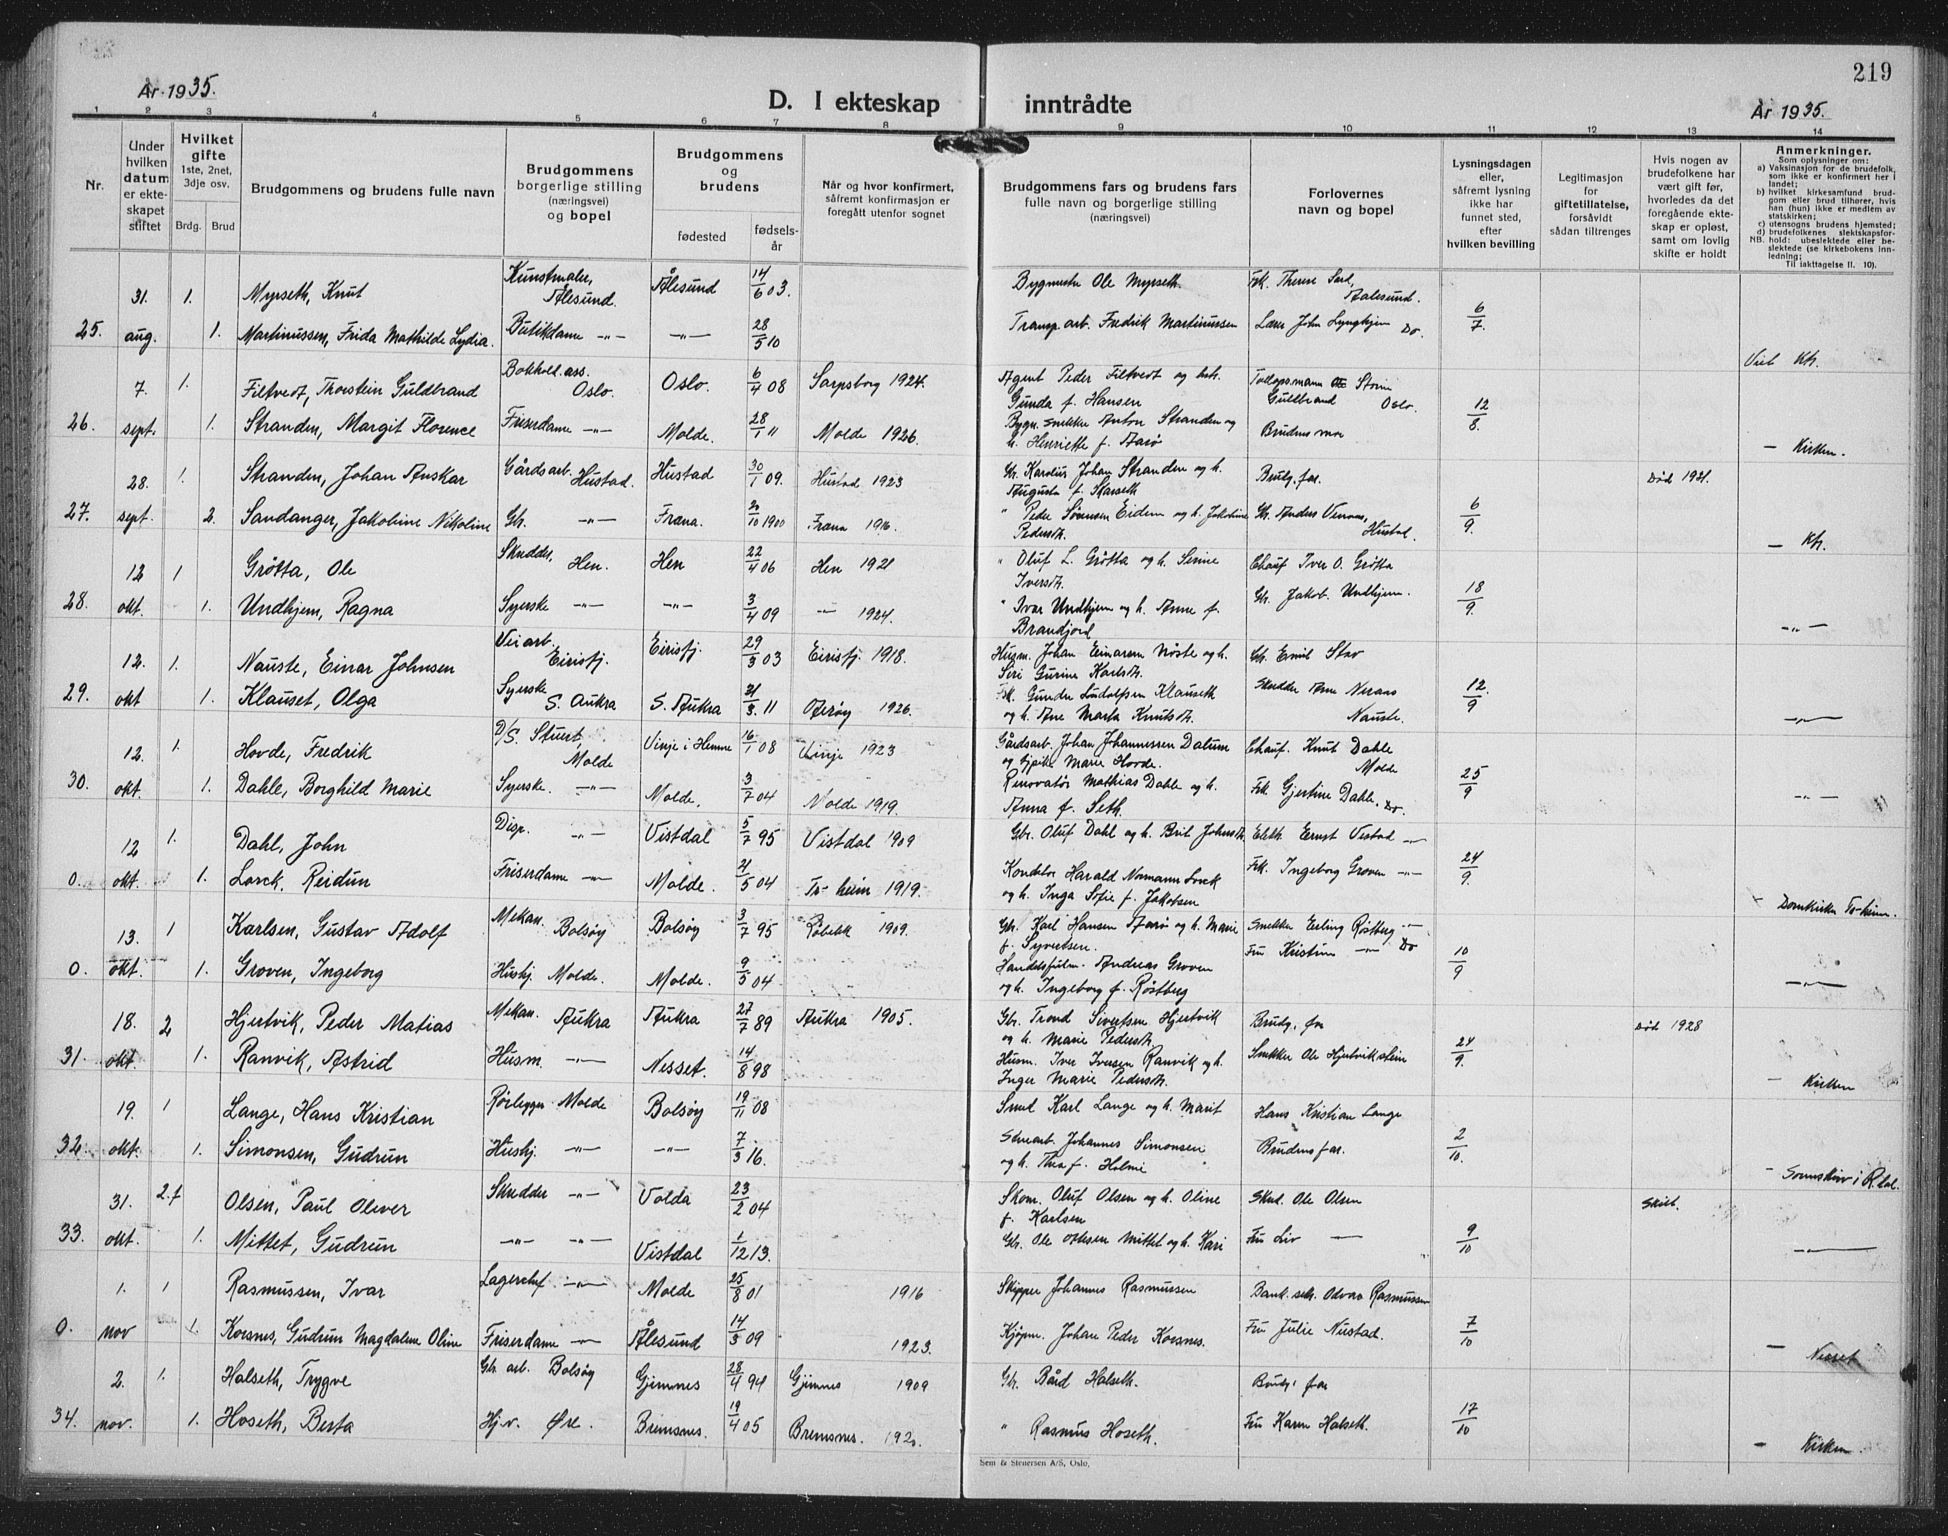 219
År 1935.
D. I ekteskap inntrådte
År 1935.
1 2 3 4 5 6 7 8 9 10 11 12 13 14
Nr.
Under hvilken datum er ekteskapet stiftet
Hvilket gifte 1ste, 2net, 3dje osv.
Brdg. Brud
Brudgommens og brudens fulle navn
Brudgommens borgerlige stilling (næringsvei) og bopel
Brudgommens og brudens
fødested
fødselsår
Når og hvor konfirmert, såfremt konfirmasjon er foregått utenfor sognet
Brudgommens fars og brudens fars fulle navn og borgerlige stilling (næringsvei)
Forlovernes navn og bopel
Lysningsdagen eller, såfremt lysning ikke har funnet sted, efter hvilken bevilling
Legitimasjon for giftetillatelse, forsåvidt sådan tiltrenges
Hvis nogen av brudefolkene har vært gift før, hvorledes da det foregående ekteskap er opløst, samt om lovlig skifte er holdt
Anmerkninger.
Som oplysninger om:
a) Vaksinasjon for de brudefolk, som ikke er konfirmert her i landet;
b) hvilket kirkesamfund brudgom eller brud tilhører, hvis han (hun) ikke er medlem av statskirken;
c) utensogns brudens hjemsted;
d) brudefolkenes slektskapsforhold: ubeslektede eller beslektede (se kirkebokens innledning;
NB. Til iakttagelse ll. 10).
31. 1. Myrseth, Knut Kunstmaler, Ålesund. Ålesund 14/6 03. Bygmester Ole Myrseth. Frk. Therese Aalesund.
25. aug. 1. Martinussen, Frida Mathilde Lydia. Butikdame -"- -"- 28/5 10 Transp. arb. Fredrik Martinussen Lærer John Lynghjem Do. 6/7.
Viet Kr.
7. 1. Filtvedt, Thorstein Guldbrand Bokhold. ass. Oslo. Oslo. 6/4 08 Sarpsborg 1924. Agent Peder Filtvedt og h. Gunda f. Hansen Guldbrand Oslo.
26. sept. 1. Stranden, Margit Florence Friserdame -"- Molde. 28/1 11 Molde 1926. Bygn. snekker Anton Stranden og h. Henriette f. Aarø Brudens mor 12/8.
- Kirken.
28. 1. Stranden, Johan Anskar Gårdsarb. Hustad. Hustad 30/1 09. Hustad 1923 Gbr. Karolius Johan Stranden og h. Augusta f. Skarseth Brudg. far. Død 1931.
27. sept. 2. Sandanger, Jakobine Nikoline Gbr. -"- Fræna. 10 1900 Fræna 1916. " Peder Sørensen Eidem og h. Jakobine Pedersdt. Gbr. Anders Hustad. 6/9.
- Kr.
12 1 Grøtta, Ole Skredder, Hen. Hen 22/4 06 Hen 1921 " Oluf L. Grøtta og h. Serine Iversdt. Chauf Iver O. Grøtta
28. okt. 1. Undhjem, Ragna Syerske -"- -"- 3/4 09 -"- 1924. " Ivar Undhjem og h. Anne f. Brandjord Gbr. Jakob Undhjem. 18/9.
-"-
12. 1. Nauste, Einar Johnsen Veiarb. Eirisfj. Eirisfj. 29/3 03 Eirisfj. 1918. Husm. Johan Einarsen Nøste og h. Siri Gurine Karlsdt. Gbr. Emil Stav
29. okt 1. Klauset, Olga Syerske S. Aukra S. Aukra 21/3. 11 Otrøy 1926. Fisk. Gunder Ludolfsen Klauseth og h. Ane Marta Knutsdt. Skredder Arne Neraas Nauste. 12./9
-"-
12. 1. Hovde, Fredrik D/S. Stuert, Molde Vinje i Hemne 16/1 08 Vinje 1923 Gårdsarb. Johan Johannessen Dalum og pike Marie Hovde. Chauf. Knut Dahle Molde
30. okt. 1. Dahle, Borghild Marie Syerske. -"- Molde. 3/7 04 Molde 1919. Renovatør Matthias Dahle og h. Anna f. Seth. Frk. Gjertine Dahle. Do. 25/9
-"-
12 1. Dahl, John Disp. -"- Vistdal 5/7 95 Vistdal 1909 Gbr. Oluf Dahl og h. Brit Johnsdt. Elektr. Ernst Vestad -"-
0. okt. 1. Lorck, Reidun Friserdame -"- Molde. 21/5 04 Tr-heim 1919. Konditor Harald Normann Lorck og h. Inga Sofie f. Jakobsen Frk. Ingeborg Groven -"- 24/9.
- Domkirken Tr-heim.
13. 1 Karlsen, Gustav Adolf Mekan. Bolsøy Bolsøy 3/7 95 Røbekk 1909. Gbr. Karl Hansen Aarø og h. Marie f. Syvertsen. Snekker Erling Røstberg -"-
0. okt. 1. Groven, Ingeborg Hushj. Molde. Molde. 9/5 04 Handelsfulm. Andreas Groven og h. Ingeborg f. Røstberg Fru Kristine -"- Do 10/9
-"-
18. 2 Hjertvik, Peder Matias Mekan. Aukra Aukra 27/7 89 Aukra 1905. Gbr. Trond Sivertsen Hjertvik og h. Marie Pedersdt. Brudg. far Død 1928
31. okt. 1. Ranvik, Astrid Husm. -"- Nesset. 14/8 98 Husm. Iver Iversen Ranvik og h. Inger Marie Pedersdt. Snekker Ole Hjertvikstein 24/9.
- Kirken
19. 1 Lange, Hans Kristian Rørlegger Molde Bolsøy 19/11 08 Smed Karl Lange og h. Marit Hans Kristian Lange
32. okt. 1. Simonsen, Gudrun Hushj. -"- -"- 7/3 16. Johannes Simonsen og h. Thea f. Holme Brudens far. 2/10.
31. 2.f Olsen, Paul Oliver Skredder -"- Volda 23/2 04 Skom. Oluf Olsen og h. Oline f. Karlsen Skred. Ole Olsen Skilt.
33. okt. 1. Mittet, Gudrun -"- -"- Vistdal 1/12 13. Gbr. Ole Ottesen Mittet og h. Kari Fru Liv -"- 9/10
-"-
1. 1 Rasmussen, Ivar Lagerchef -"- Molde 25/8 01 1916 Skipper Johannes Rasmussen Bank. sekr. Odvar Rasmussen
0. nov 1. Korsnes, Gudrun Magdalene Oline Friserdame -"- Ålesund 14/3 09 1923. Kjøpm. Johan Peder Korsnes. Fru Julie Nustad. 7/10
- Nesset
2. 1. Halseth, Trygve Gbr. arb. Bolsøy Gjemnes 28/4 94 Gjemnes 1909 Gbr. Bård Halseth. Brudg. far
34. nov. 1. Hoseth, Berta Hj.v. Øre. Bremsnes. 19/4 05 Bremsnes. 192 " Rasmus Hoseth. Fru Karen Halseth. 17/10
- Kirken.
Sem & Stenersen A/S, Oslo.